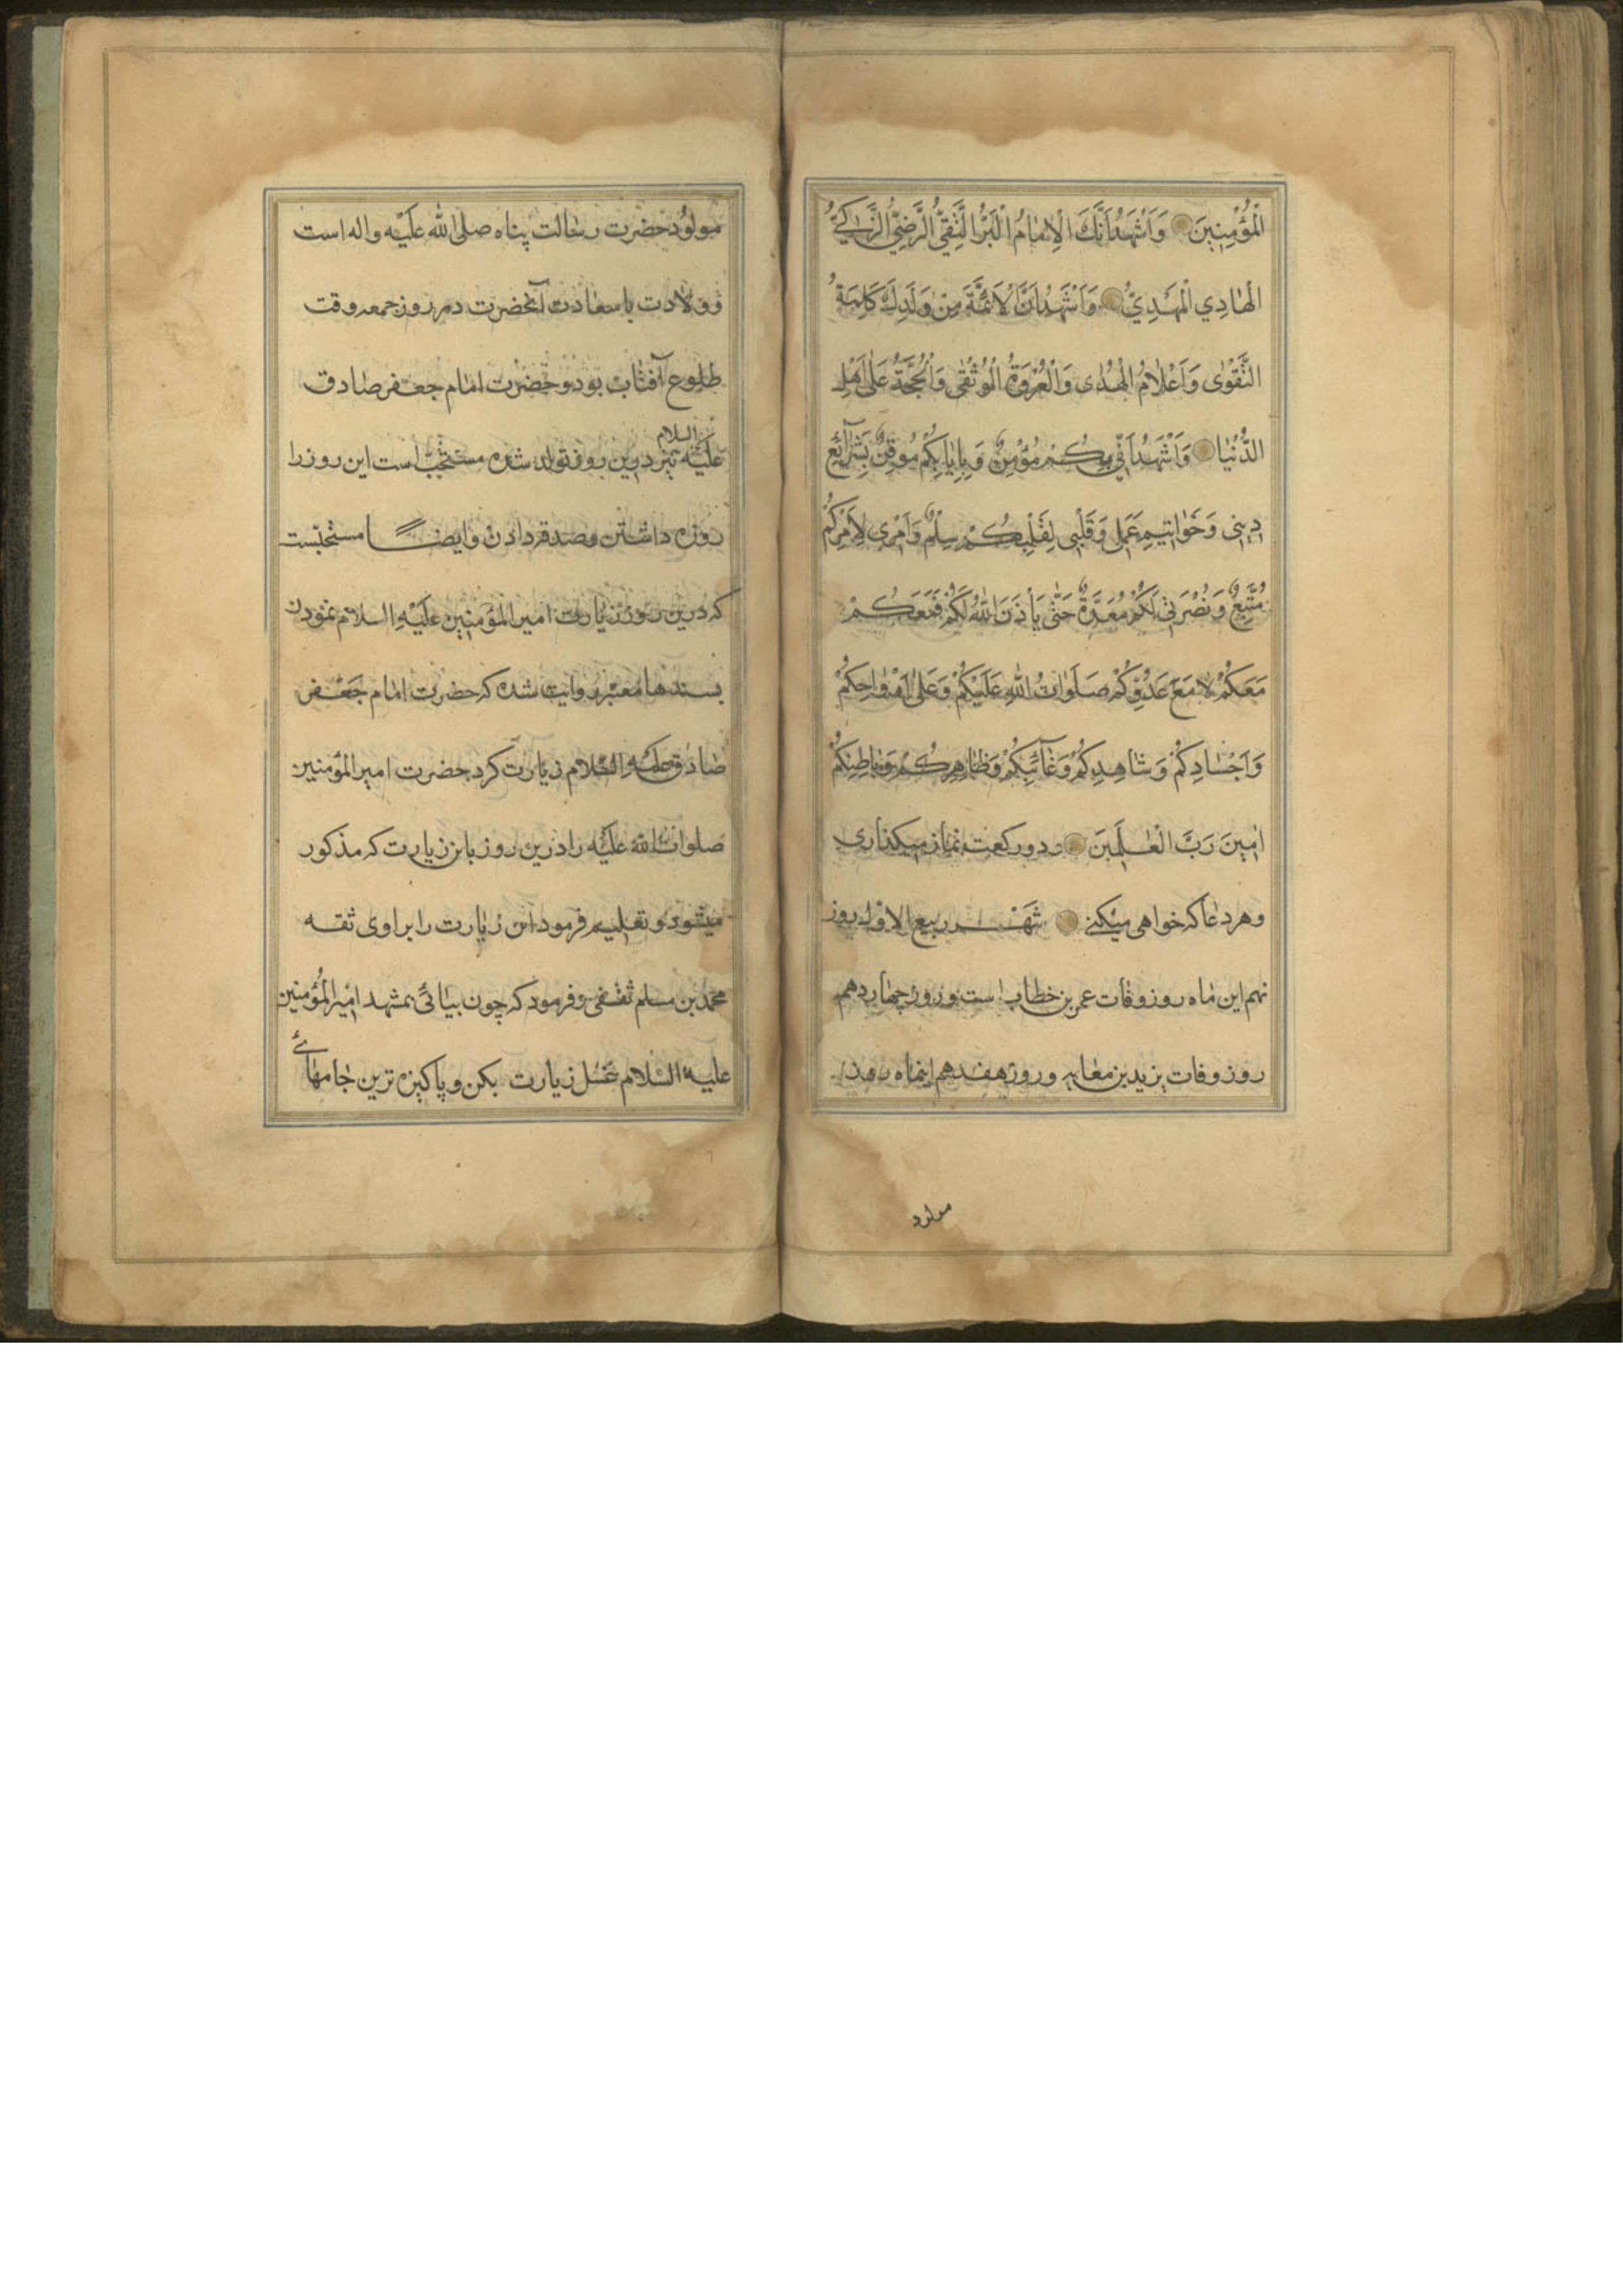 الْمُؤْمِنِينَ وَاَشْهَدُ اَنَّكَ الْاِمٰامُ الْبَرُّ التَّقِيُّ الرَّضِيُّ الزَّكِيُّ
الْهٰادِي الْمَهْدِيُّ وَاَشْهَدُ اَنَّ الْاَئِمَّةَ مِنْ وَلَدِكَ كَلِمَةُ
التَّقْوٰى وَاَعْلٰامُ الْهُدٰى وَالْعُرْوَةُ الْوُثْقٰى وَالْحُجَّةُ عَلٰى اَهْلِ
الدُّنْيٰا وَاَشْهَدُ اَنِّي بِكُمْ مُؤْمِنٌ وَبِاِيٰابِكُمْ مُوقِنٌ بِشَرٰائِعِ
دِينِى وَخَوٰاتِيمِ عَمَلِى وَقَلْبِى لِقَلْبِكُمْ سِلْمٌ وَاَمْرِى لِاَمْرِكُمْ
مُتَّبِعٌ وَنُصْرَتِى لَكُمْ مُعَدَّةٌ حَتّٰى يَأْذَنَ اللّٰهُ لَكُمْ فَمَعَكُمْ
مَعَكُمْ لٰا مَعَ عَدُوِّكُمْ صَلَوٰاتُ اللّٰهِ عَلَيْكُمْ وَعَلٰى اَرْوٰاحِكُمْ
وَاَجْسٰادِكُمْ وَشٰاهِدِكُمْ وَغٰآئِبِكُمْ وَظٰاهِرِكُمْ وَبٰاطِنِكُمْ
اٰمِينَ رَبَّ الْعٰالَمِينَ و دو ركعت نماز ميكذارى
وهر دعا كه خواهى ميكنى شَهْر ربيع الاول روز
نهم اين ماه روز وفات عمر بن خطاب است و روز چهاردهم
روز وفات يزيد بن معٰايه و روز هفدهم اينماه روز
مولود
مولود حضرت رسالت پناه صلى الله عليه واله است
و ولادت با سعادت آنحضرت در روز جمعه وقت
طلوع آفتاب بود و حضرت امام جعفر صادق
عليه السلام نيز درين روز تولد شده مستحبّ است اين روز را
روزه داشتن و صدقه دادن و ايضاً مستحبّست
كه درين روز زيارت امير المؤمنين عليه السلام نمودن
بسندها معتبر روايت شده كه حضرت امام جعفر
صادق عليه السلام زيارت كرد حضرت امير المؤمنين
صلوات الله عليه را درين روز باين زيارت كه مذكور
ميشود و تعليم فرمود اين زيارت را براوى ثقه
محمد بن مسلم ثقفى و فرمود كه چون بيائى بمشهد امير المؤمنين
عليه السلام غسل زيارت بكن و پاكيزه ترين جامهاى